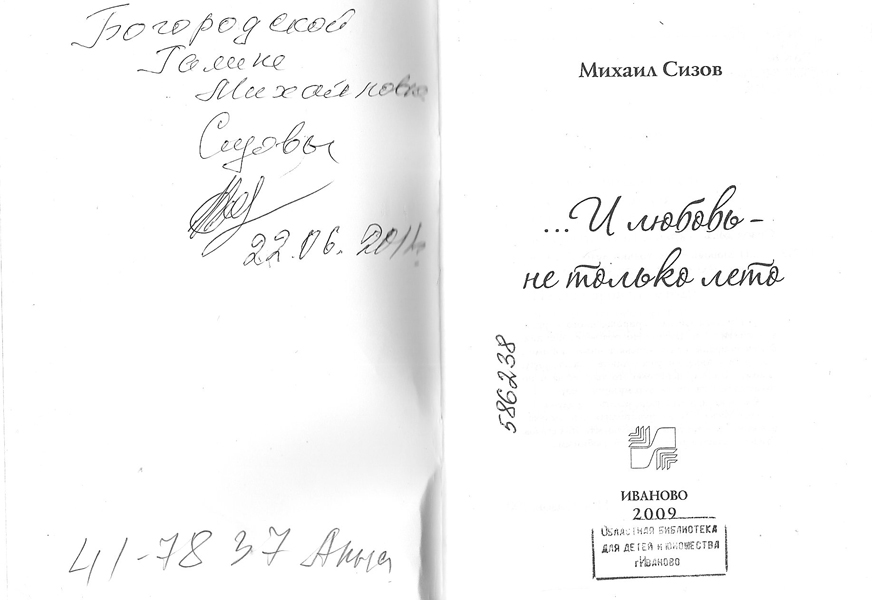 Богородской
Галине
Михайловне
Сизовы
22.06.2011г.
41-78 37 Анна
Михаил Сизов
...И любовь –
не только лето
586238
ИВАНОВО
2009
ОБЛАСТНАЯ БИБЛИОТЕКА
ДЛЯ ДЕТЕЙ И ЮНОШЕСТВА
г.Иваново